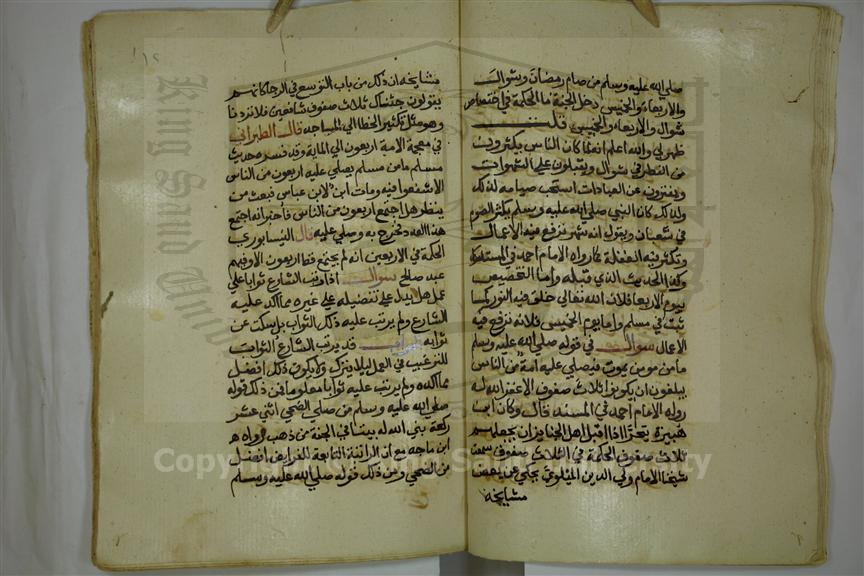 صلي الله عليه وسلم من صام رمضان وشوال
والاربعاء والخميس دخل الجنة ما الحكمة في اختصاص
شوال والاربعاء والخميس قلت
ظهر لي والله اعلم انه لما كان الناس يكثرون
من الفطر في شوال ويقبلون علي الشهوات
ويفترون عن العبادات استحب صيامه لذلك
ولذلك كان النبي صلي الله عليه وسلم يكثر الصوم
في شعبان ويقول انه شهر ترفع فيه الاعمال
وتكثر فيه الغفلة كما رواه الامام احمد في المسند
وكذا الحديث الذي قبله واما التخصيص
بيوم الاربعا فلان الله تعالي خلق فيه النور كما
ثبت في مسلم واما يوم الخميس فلانه ترفع فيه
الاعمال سوال في قوله صلي الله عليه وسلم
ما من مومن يموت فيصلي عليه امة من الناس
يبلغون ان يكونوا ثلاث صفوف الا غفر الله له
رواه الامام احمد في المسند قال وكان ابن
هبيرة اذا اقبل اهل الجنازة ان يجعلهم
ثلاث صفوف الحكمة في الثلاث صفوف سمعت
شيخنا الامام ولي الدين الملوي يحكي عن بعض
مشايخه
مشايخه ان ذلك من باب التوسع في الرجا كانهم
يقولون جئناك ثلاث صفوف شافعين فلا تردنا
وهو مثل تكثير الخطا الي المساجد قال الطبراني
في معجمه الامة اربعون الي الماية وقد فسره حديث
مسلم ما من مسلم يصلي عليه اربعون من الناس
الا شفعوا فيه ومات ابن لابن عباس فبعث من
ينظر هل اجتمع اربعون من الناس فاخبر انه اجتمع
هذا العدد فخرج به وصلي عليه قال النيسابوري
الحكمة في الاربعين انه لم يجتمع قط اربعون الا وفيهم
عبد صالح سوال اذا رتب الشارع ثوابا علي
عمل هل يدل علي تفضيله علي غيره مما اكد عليه
الشارع ولم يرتب عليه ذلك الثواب بل سكت عن
ثوابه جواب قد يرتب الشارع الثواب
للترغيب في العمل ليلا يترك ولا يكون ذلك افضل
مما اكده ولم يرتب عليه ثوابا معلوما فمن ذلك قوله
صلي الله عليه وسلم من صلي الضحي اثني عشر
ركعة بني الله له بيتا في الجنة من ذهب رواه
ابن ماجه مع ان الراتبة التابعة للفرايض افضل
من الضحي ومن ذلك قوله صلي الله عليه وسلم